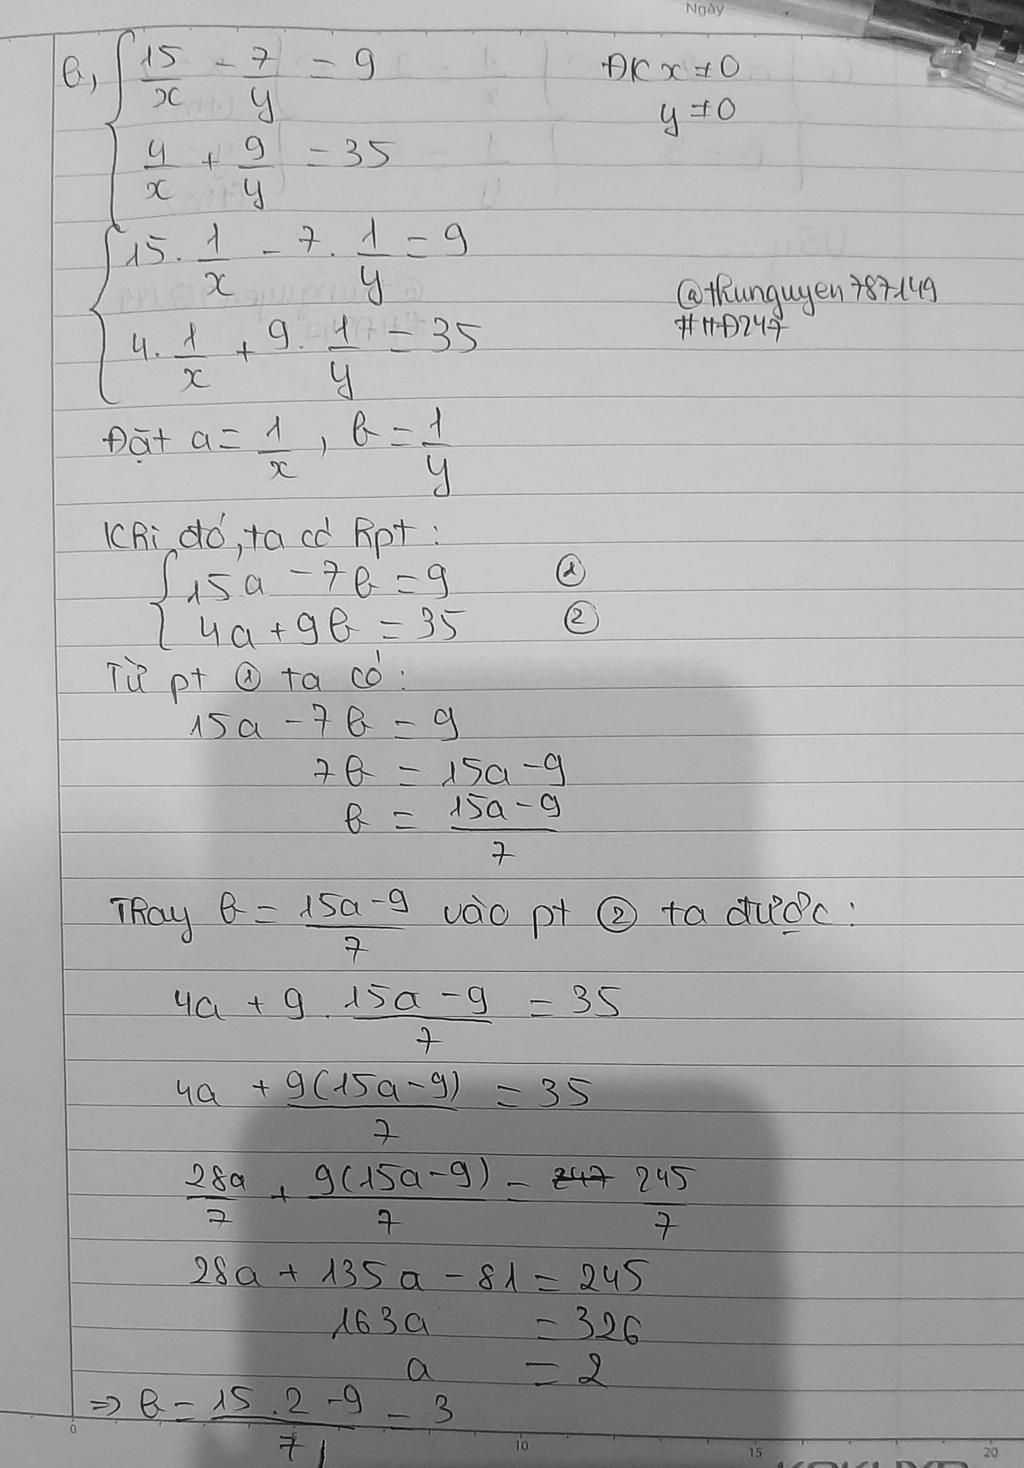 Ngày
b, { 15/x - 7/y = 9 ĐK x ≠ 0
y ≠ 0
4/x + 9/y = 35
{ 15 . 1/x - 7 . 1/y = 9
4 . 1/x + 9 . 1/y = 35
@thunguyen787149
#HĐ247
Đặt a = 1/x , b = 1/y
Khi đó, ta có hpt :
{ 15a - 7b = 9 ①
4a + 9b = 35 ②
Từ pt ① ta có :
15a - 7b = 9
7b = 15a - 9
b = (15a - 9)/7
Thay b = (15a - 9)/7 vào pt ② ta được :
4a + 9 . (15a - 9)/7 = 35
4a + 9(15a - 9)/7 = 35
28a/7 + 9(15a - 9)/7 = 245/7
28a + 135a - 81 = 245
163a = 326
a = 2
⇒ b = (15 . 2 - 9)/7 = 3
0 10 15 20